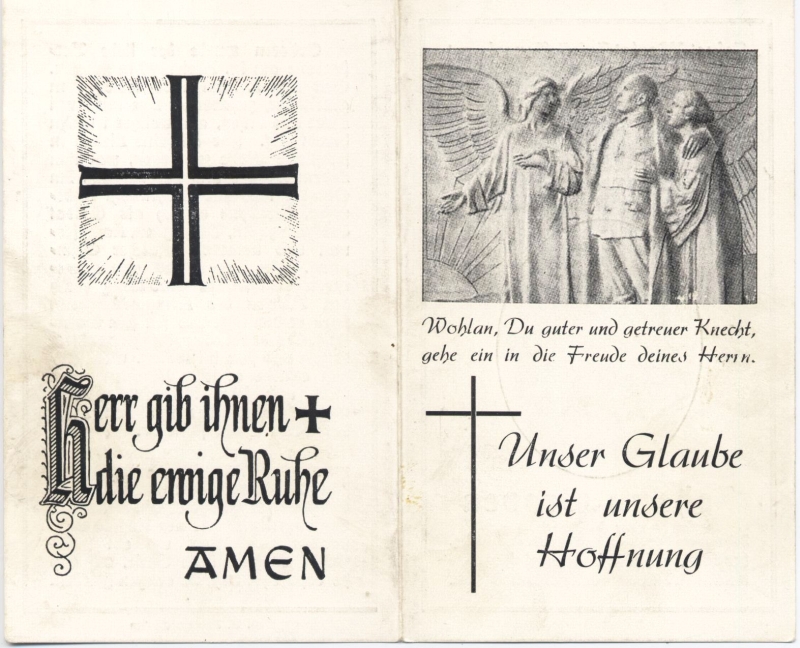 Herr gib ihnen
die ewige Ruhe
AMEN
Wohlan, Du guter und getreuer Knecht,
gehe ein in die Freude deines Herrn.
Unser Glaube
ist unsere
Hoffnung